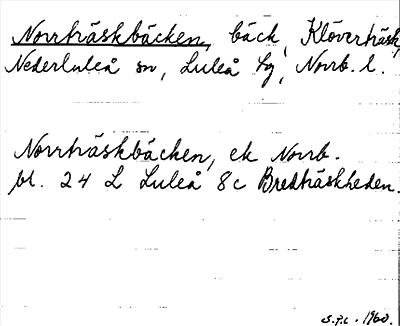 Norrträskbäcken, bäck, Klöverträsk,
Nederluleå sn, Luleå tg, Norrb. l.
Norrträskbäcken, ek Norrb.
bl. 24 L Luleå 8c Bredträskheden.
S.P.L. 1960.